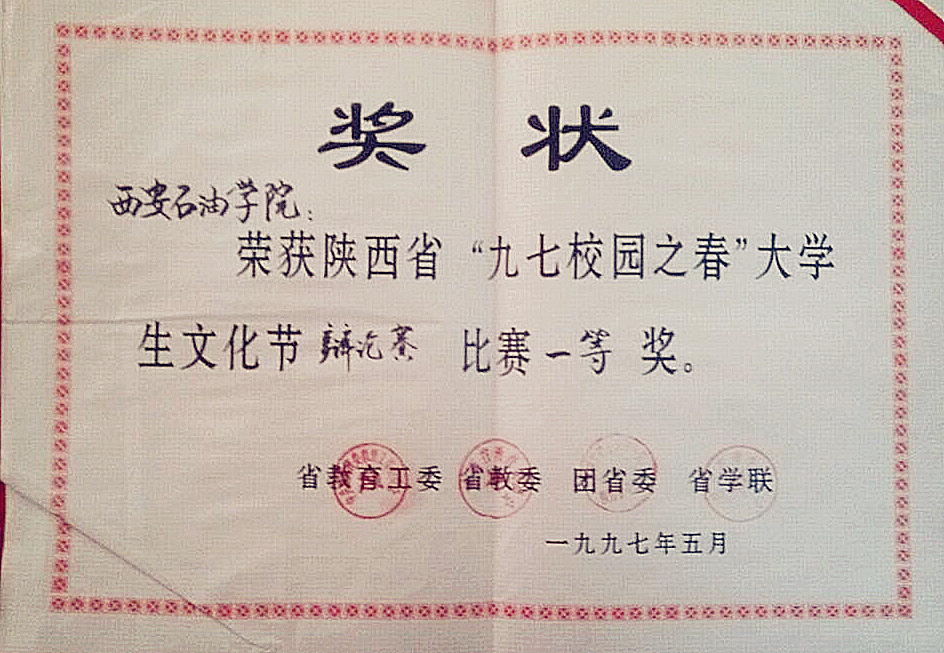 奖状
西安石油学院：
荣获陕西省“九七校园之春”大学
生文化节辩论赛 比赛一等 奖。
省教育工委 省教委 团省委 省学联
一九九七年五月